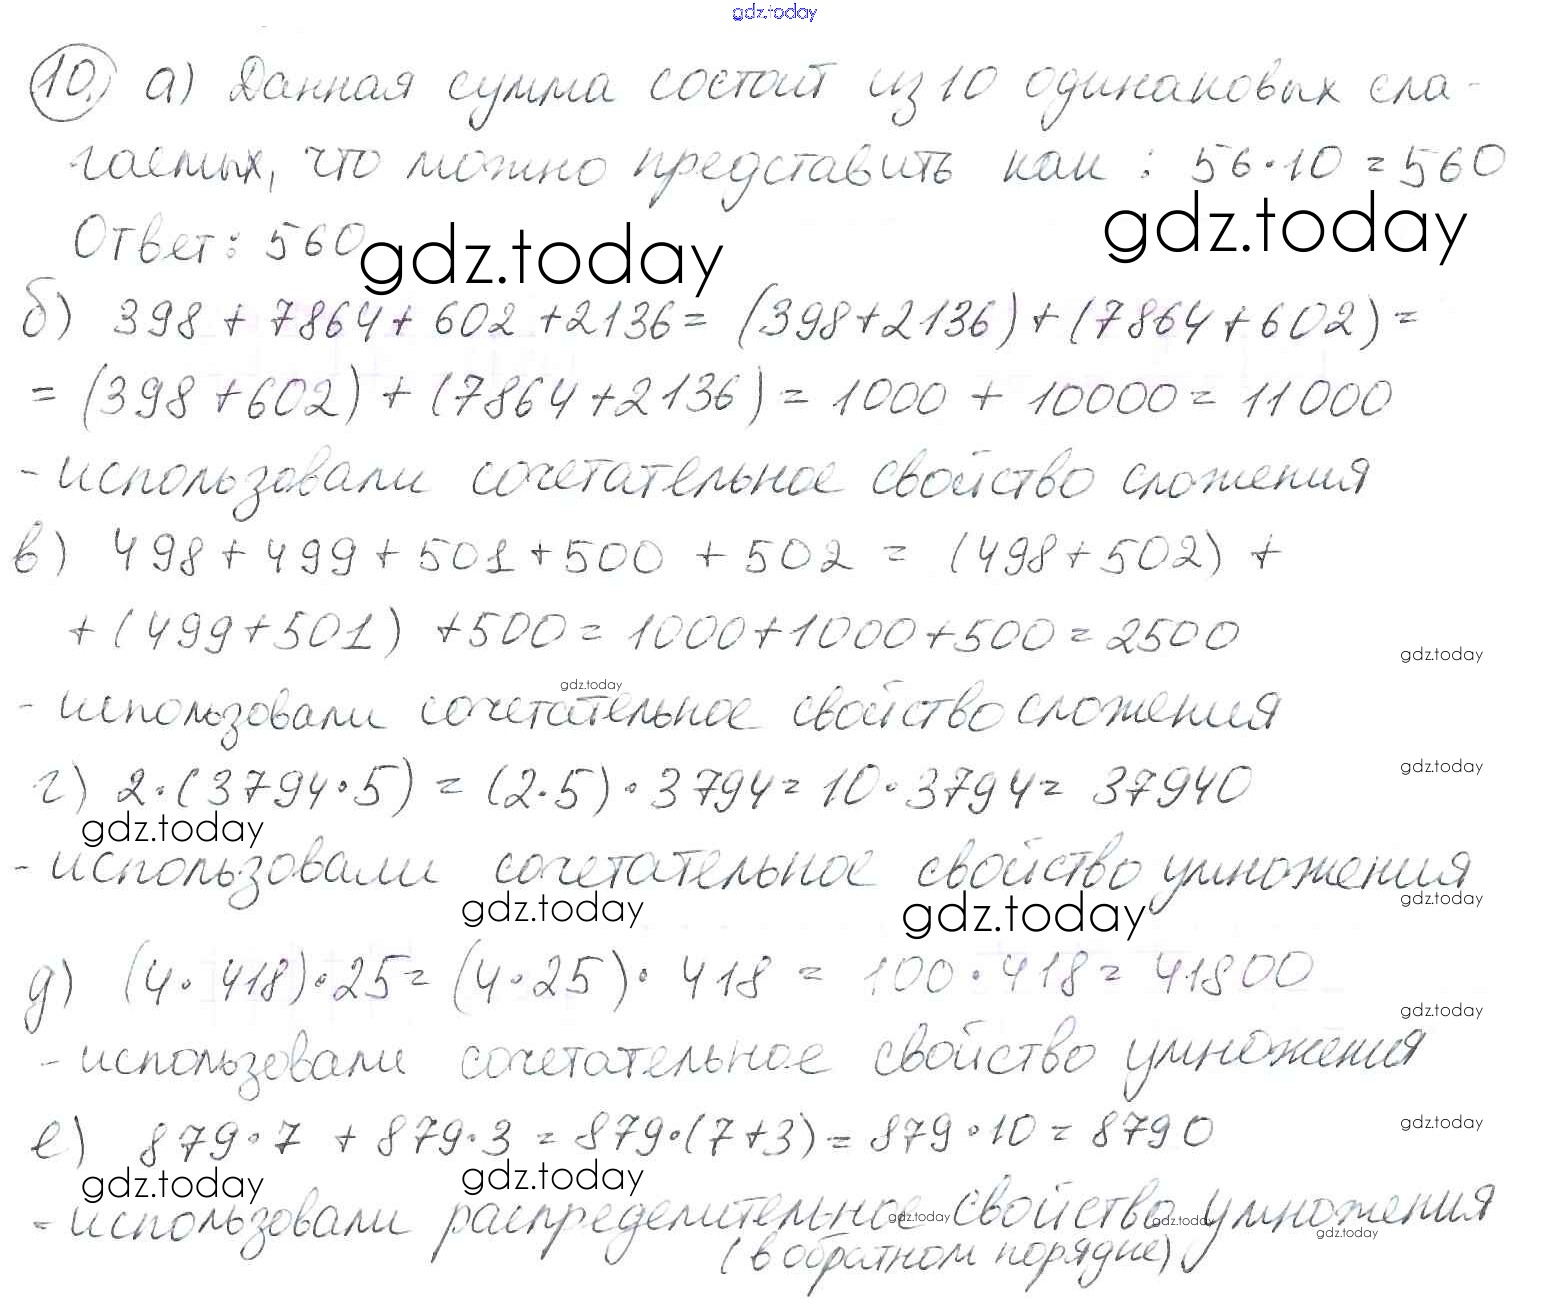 gdz.today
10. а) Данная сумма состоит из 10 одинаковых сла-
гаемых, что можно представить как : 56·10=560
gdz.today
Ответ: 560
gdz.today
б) 398 + 7864 + 602 + 2136 = (398+2136) + (7864+602) =
= (398+602) + (7864+2136) = 1000 + 10000 = 11000
- использовали сочетательное свойство сложения
в) 498 + 499 + 501 + 500 + 502 = (498+502) +
+ (499+501) + 500 = 1000+1000+500 = 2500
gdz.today
gdz.today
- использовали сочетательное свойство сложения
г) 2·(3794·5) = (2·5)·3794 = 10·3794 = 37940
gdz.today
gdz.today
- использовали сочетательное свойство умножения
gdz.today
gdz.today
gdz.today
д) (4·418)·25 = (4·25)·418 = 100·418 = 41800
gdz.today
- использовали сочетательное свойство умножения
е) 879·7 + 879·3 = 879·(7+3) = 879·10 = 8790
gdz.today
gdz.today
gdz.today
- использовали распределительное свойство умножения
gdz.today
gdz.today
gdz.today
(в обратном порядке)